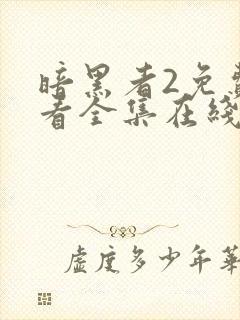 暗黑者2免费
看全集在线
虚度多少年華